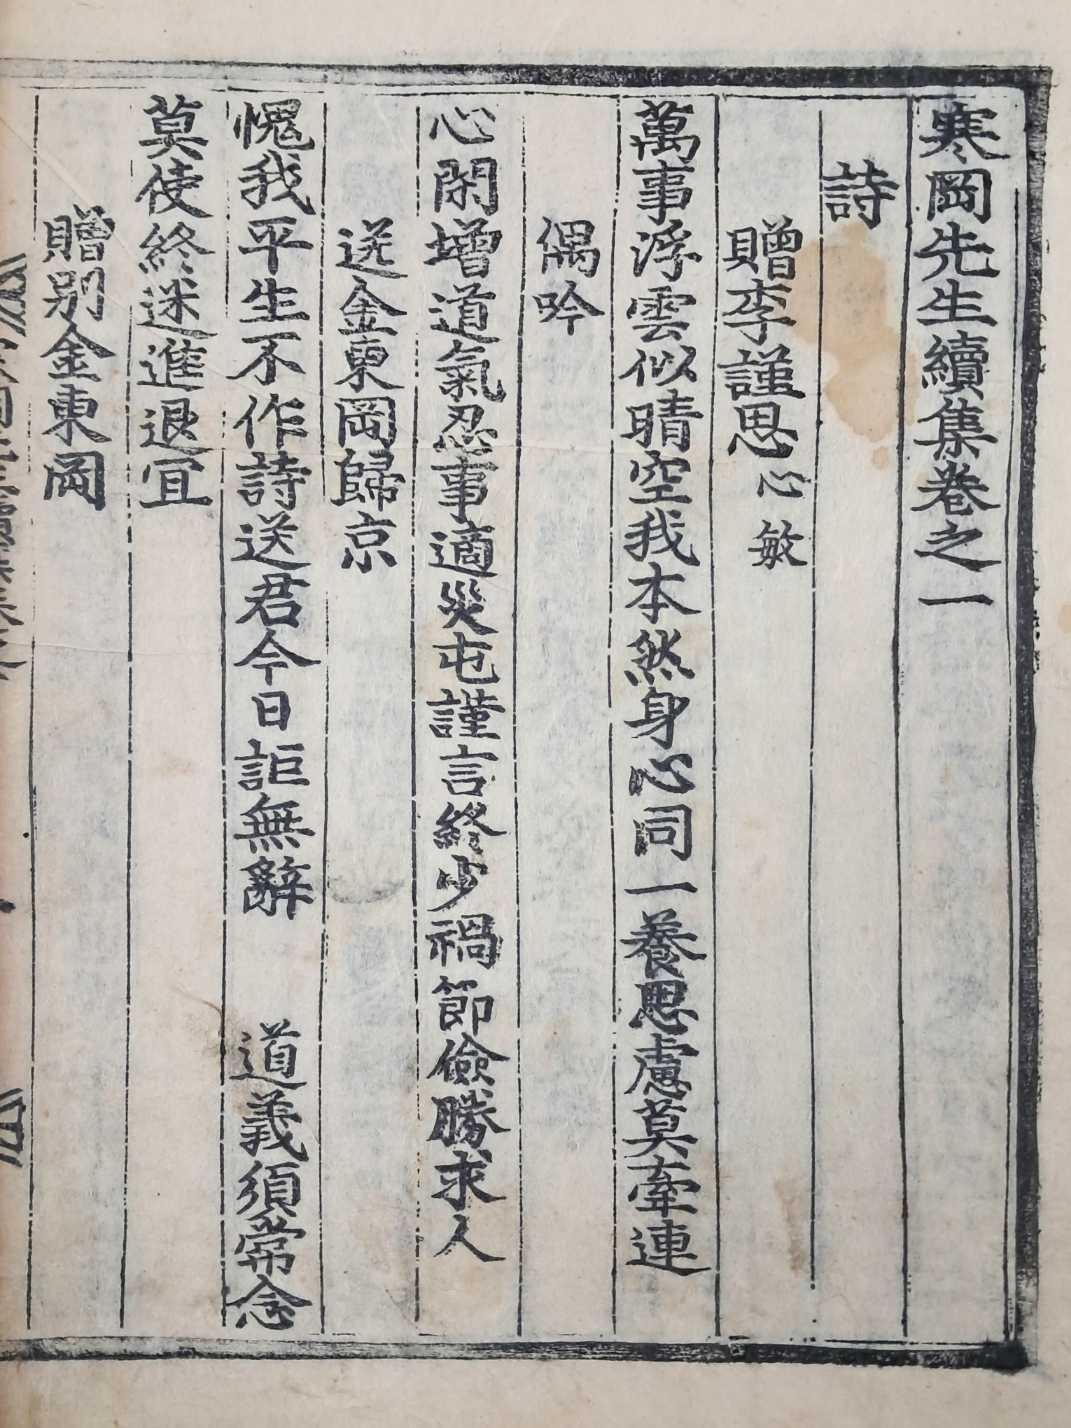 寒岡先生續集卷之一
詩
贈李謹思心敏
萬事浮雲似晴空我本然身心同一養思慮莫牽連
偶吟
心閑增道氣忍事適災屯謹言終少禍節儉勝求人
送金東岡歸京
愧我平生不作詩送君今日詎無辭 道義須常念
莫使終迷進退宜
贈別金東岡